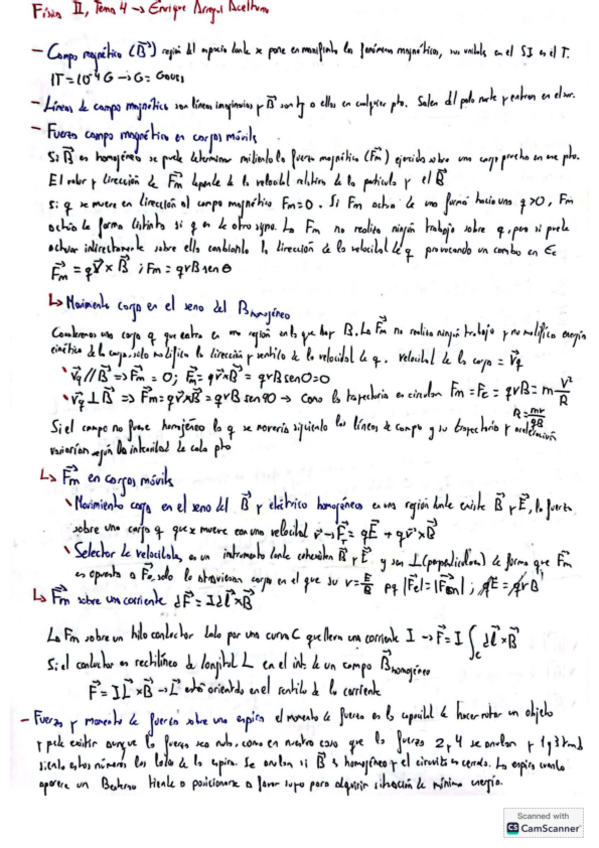 Física II, Tema 4 → Enrique Arregui Aceituno
- Campo magnético (B⃗) región del espacio donde se pone en manifiesto los fenómenos magnéticos, sus unidades en el SI es el T.
1T = 10⁻⁴ G → G = Gauss
- Líneas de campo magnético son líneas imaginarias y B⃗ son tg a ellas en cualquier pto. Salen del polo norte y entran en el sur.
- Fuerza campo magnético en cargas móvils
Si B⃗ es homogéneo se puede determinar midiendo la fuerza magnética (F⃗m) ejercida sobre una carga prueba en ese pto.
El valor y dirección de F⃗m depende de la velocidad relativa de la partícula y el B⃗
Si q se mueve en dirección al campo magnético Fm=0. Si Fm actua de una forma hacia una q>0, Fm
actúa de forma distinta si q es de otro signo. La Fm no realiza ningún trabajo sobre q, pero si puede
actuar indirectamente sobre ella cambiando la dirección de la velocidad de q provocando un cambio en Ec
F⃗m = qV⃗ × B⃗ ; Fm = qvB sen θ
↳ Movimiento carga en el seno del B homogéneo
Consideremos una carga q que entra en una región en la que hay B. La F⃗m no realiza ningún trabajo y no modifica energía
cinética de la carga, solo modifica la dirección y sentido de la velocidad de q. Velocidad de la carga = V⃗q
• V⃗q // B⃗ ⇒ Fm = 0 ; F⃗m = qv⃗×B⃗ = qvB sen0 = 0
• V⃗q ⊥ B⃗ ⇒ Fm = qv⃗×B⃗ = qvB sen90 → como la trayectoria es circular Fm = Fc = qvB = m V²/R
R = mv/qB
Si el campo no fuese homogéneo la q se movería siguiendo las líneas de campo y su trayectoria y aceleración
variarían según la intensidad de cada pto
↳ F⃗m en cargas móvils
• Movimiento carga en el seno del B⃗ y eléctrico homogéneos es una región donde existe B⃗ y E⃗, la fuerza
sobre una carga q que se mueve con una velocidad v⃗ → F⃗T = qE⃗ + qv⃗×B⃗
• Selector de velocidades, es un instrumento donde coexisten B⃗ y E⃗ y son ⊥ (perpendiculares) de forma que F⃗m
es opuesta a F⃗e, solo lo atraviesan cargas en el que su v = E/B pq |F⃗e| = |F⃗m| ; qE = qvB
↳ F⃗m sobre una corriente dF⃗ = Idl⃗×B⃗
La Fm sobre un hilo conductor dado por una curva C que lleva una corriente I → F⃗ = I ∫c dl⃗×B⃗
Si el conductor es rectilíneo de longitud L en el int. de un campo B⃗ homogéneo
F⃗ = IL⃗ × B⃗ → L⃗ está orientado en el sentido de la corriente
- Fuerzas y momento de fuerzas sobre una espira el momento de fuerzas es la capacidad de hacer rotar un objeto
y puede existir aunque la fuerza sea nula, como en nuestro caso que las fuerzas 2 y 4 se anulan y 1 y 3
siendo estos números los lados de la espira. Se anulan si B⃗ es homogéneo y el circuito es cerrado. La espira cuando
aparece un B externo tiende a posicionarse a favor suyo para adquirir situación de mínima energía.
Scanned with
CS CamScanner